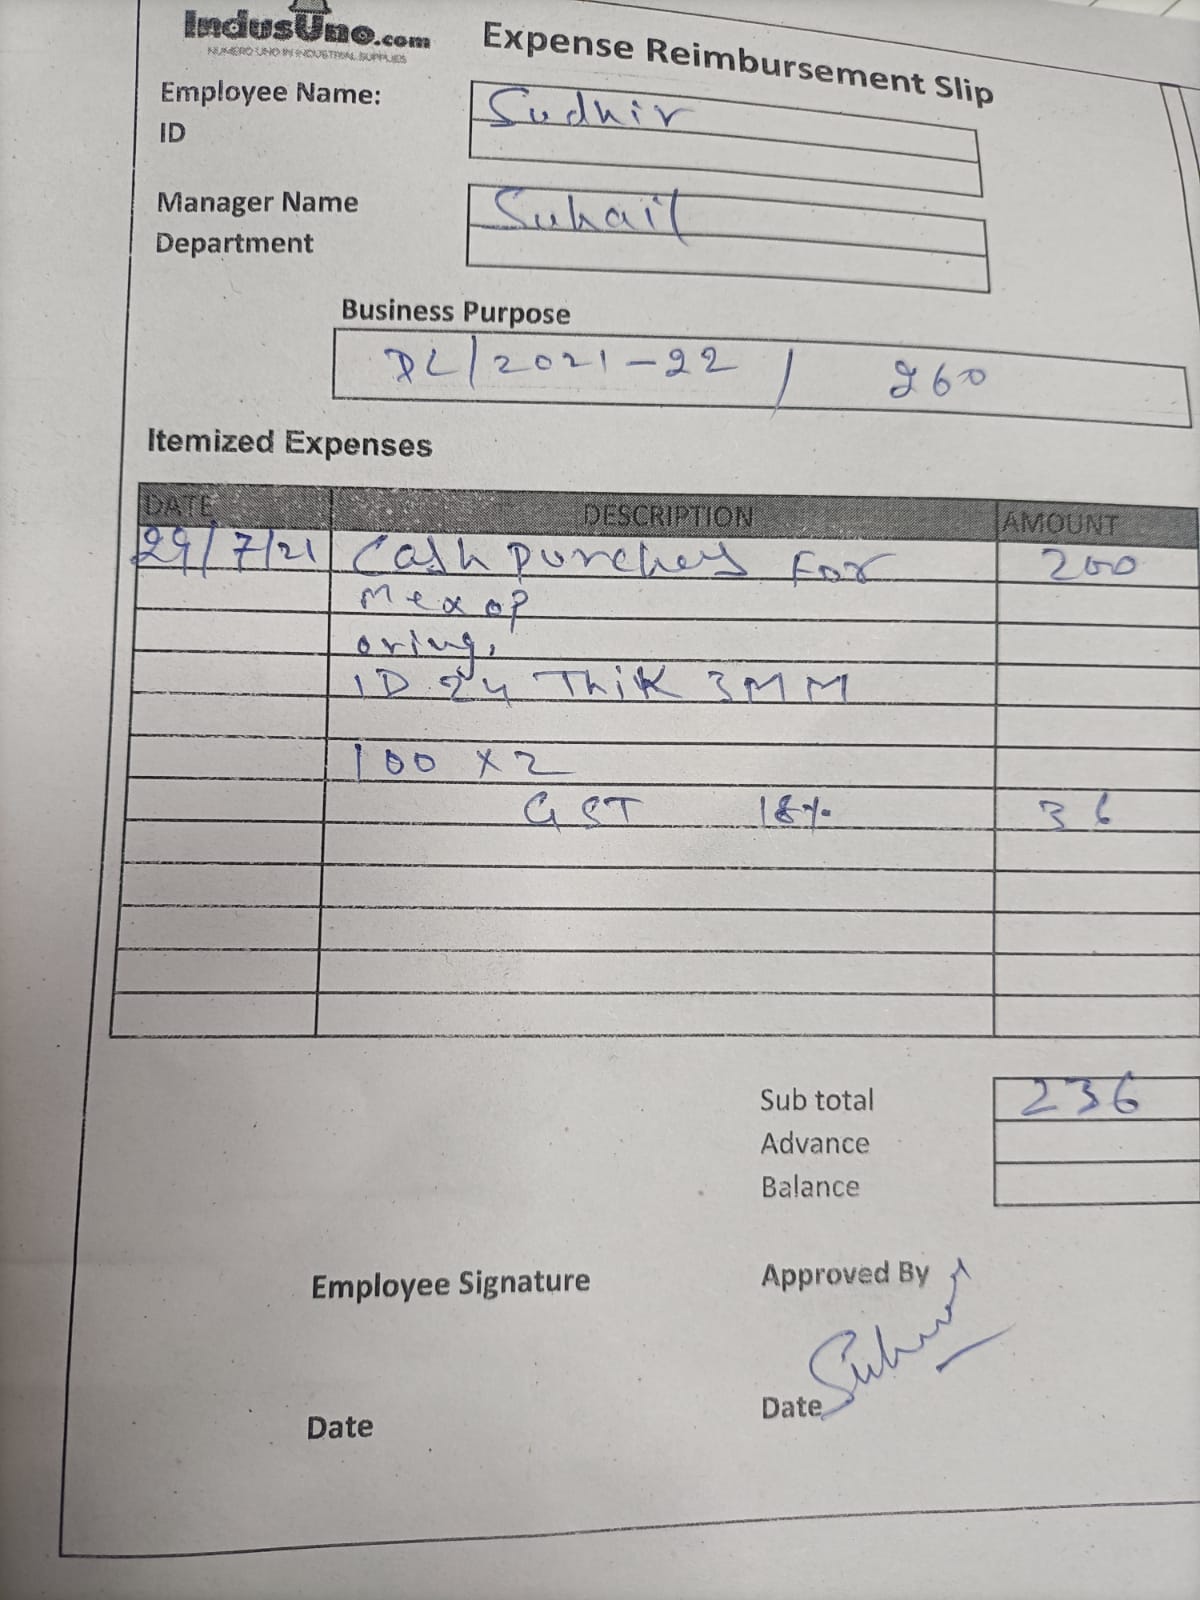 IndusUno.com
NUMERO UNO IN INDUSTRIAL SUPPLIES
Expense Reimbursement Slip
Employee Name: Sudhir
ID
Manager Name Suhail
Department
Business Purpose
DL/2021-22 / 260
Itemized Expenses
DATE DESCRIPTION AMOUNT
29/7/21 Cash purches For 200
oring,
ID 24 Thik 3MM
100 x 2
GST 18% 36
Sub total 236
Advance
Balance
Employee Signature
Approved By
Date
Date